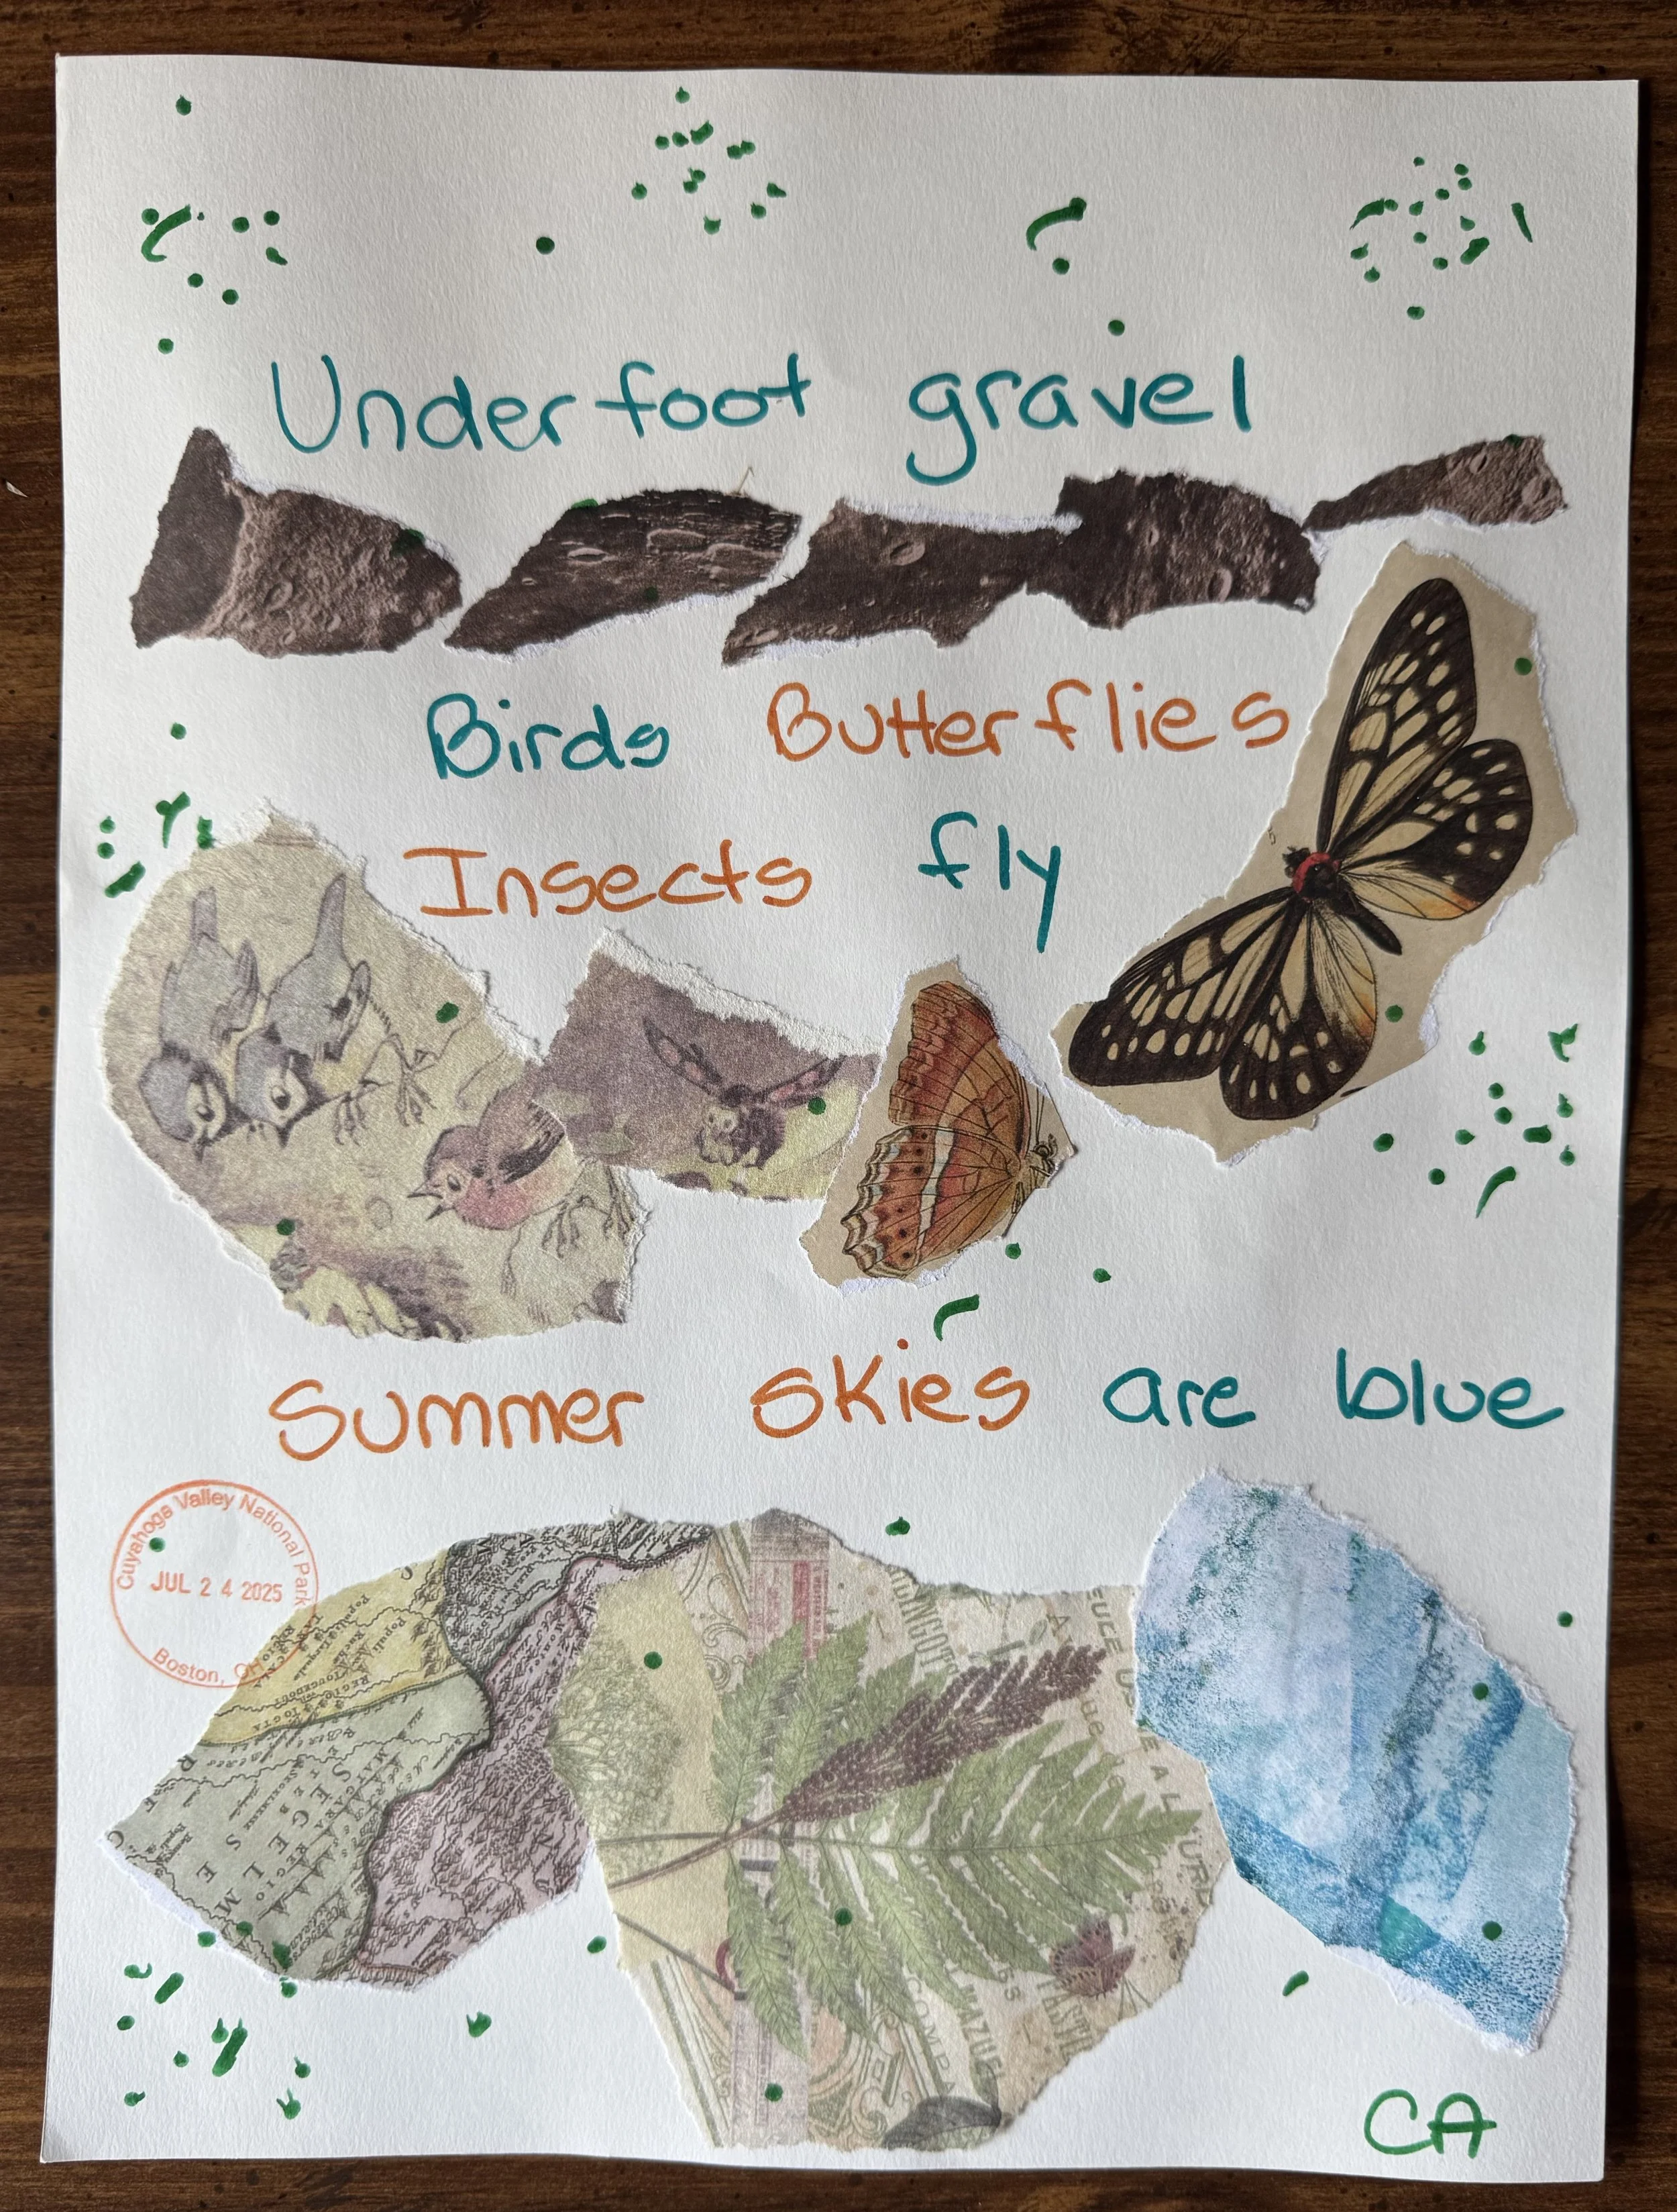 Underfoot gravel
Birds Butterflies
Insects fly
Summer skies are blue
Cuyahoga Valley National Park
JUL 24 2025
Boston, OH
CA